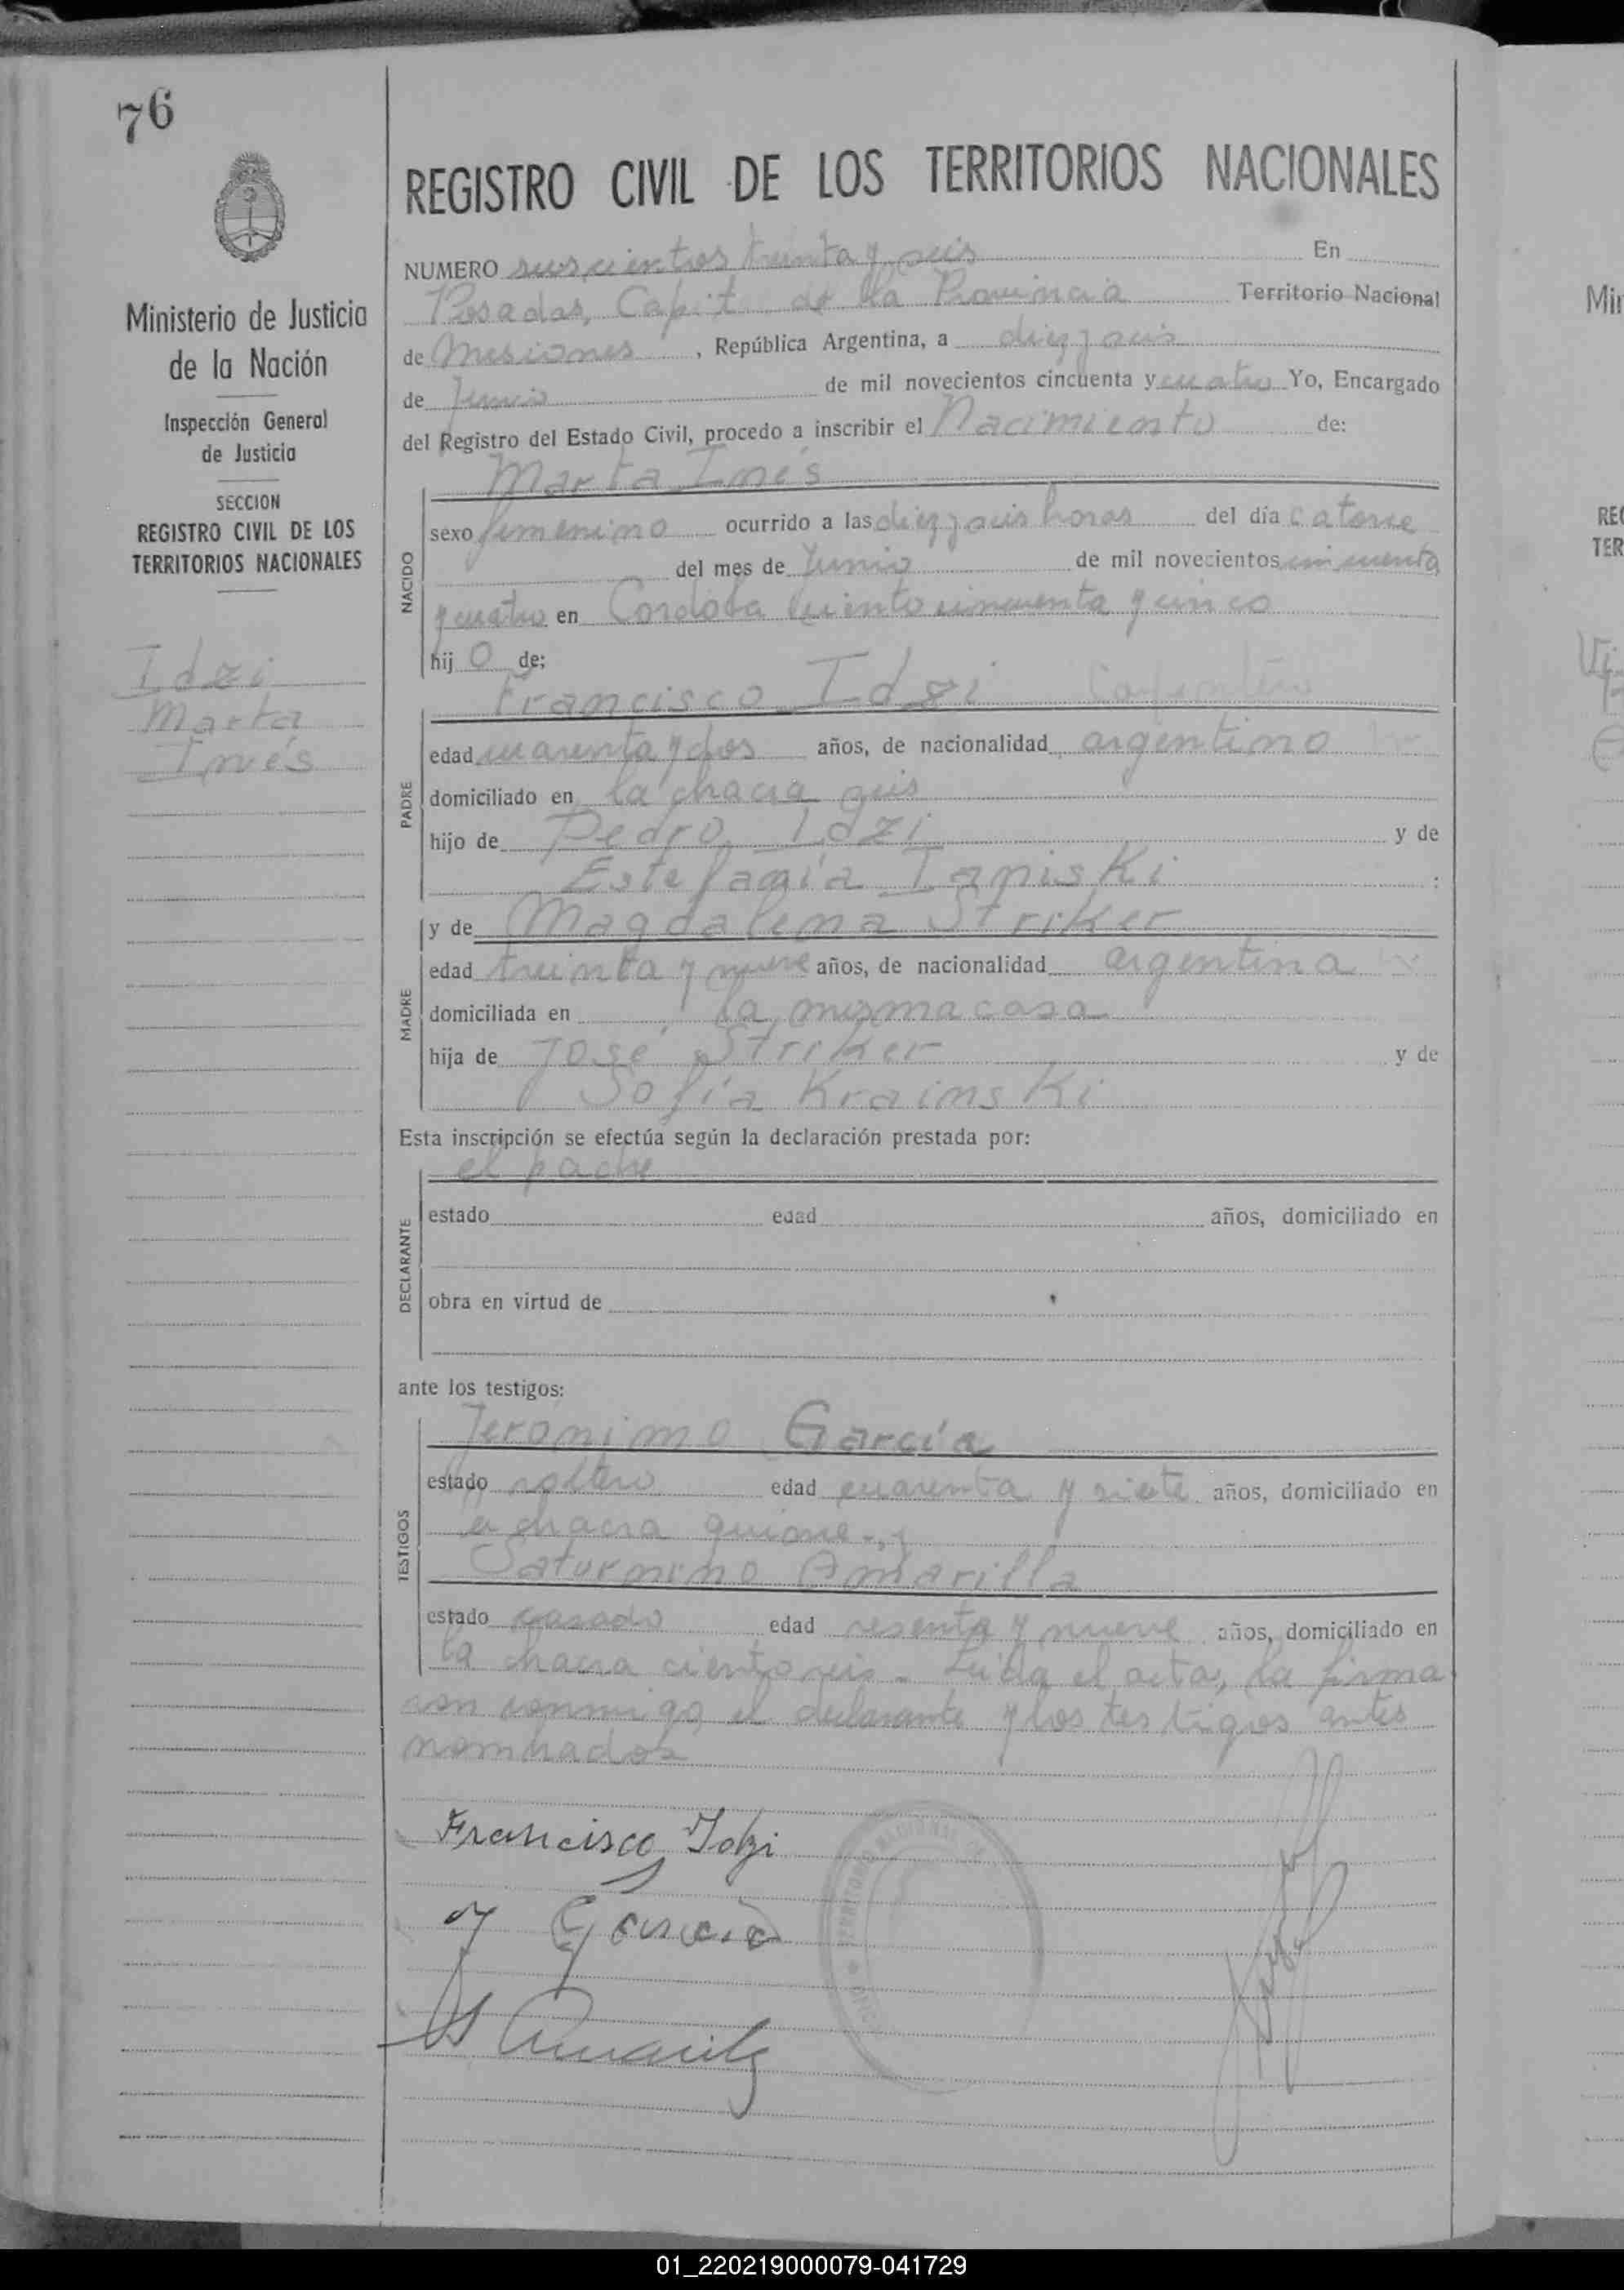 76
REGISTRO CIVIL DE LOS TERRITORIOS NACIONALES
Ministerio de Justicia
de la Nación
Inspección General
de Justicia
SECCION
REGISTRO CIVIL DE LOS
TERRITORIOS NACIONALES
Idzi
Marta
Inés
NUMERO seiscientos treinta y seis En
Posadas, Capit. de la Provincia Territorio Nacional
de Misiones, República Argentina, a diez y seis
de Junio de mil novecientos cincuenta y cuatro Yo, Encargado
del Registro del Estado Civil, procedo a inscribir el Nacimiento de:
NACIDO
Marta Inés
sexo femenino ocurrido a las diez y seis horas del día catorce
del mes de Junio de mil novecientos cincuenta
y cuatro en Cordoba ciento cincuenta y cinco
hij o de;
PADRE
Francisco Idzi Carpintero
edad cuarenta y dos años, de nacionalidad argentino
domiciliado en la chacra seis
hijo de Pedro Idzi y de
Estefanía Ianiski
MADRE
y de Magdalena Striker
edad treinta y nueve años, de nacionalidad argentina
domiciliada en la misma casa
hija de José Striker y de
Sofía Krainski
Esta inscripción se efectúa según la declaración prestada por:
DECLARANTE
el padre
estado edad años, domiciliado en
obra en virtud de
ante los testigos:
TESTIGOS
Jerónimo García
estado soltero edad cuarenta y siete años, domiciliado en
la chacra quince.- y
Saturnino Amarilla
estado casado edad sesenta y nueve años, domiciliado en
la chacra ciento seis.- Leída el acta, la firma
con conmigo, el declarante y los testigos antes
nombrados
Francisco Idzi
J García
S Amarilla
01_220219000079-041729